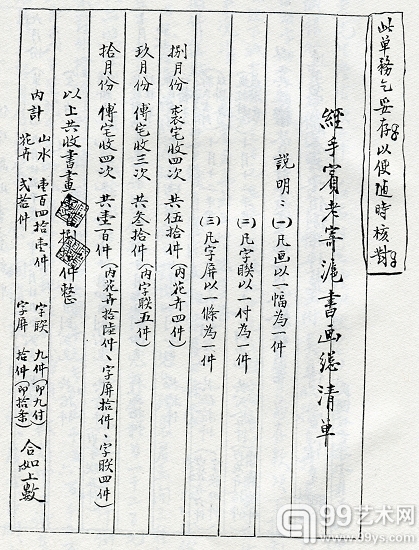 此单務乞妥存以便随時核對
經手賓老寄滬書画總清单
說明：(一)凡画以一幅為一件
(二)凡字聯以一付為一件
(三)凡字屏以一條為一件
捌月份 裘宅收四次 共伍拾件(内花卉四件)
玖月份 傅宅收三次 共叁拾件(内字联五件)
拾月份 傅宅收四次 共壹百件(内花卉拾陸件、字屏拾件、字联四件)
以上共收書畫捌拾件整
内計 山水 壹百四拾壹件 字联 九件(即九付)
花卉 弍拾件 字屏 拾件(即拾条)
合如上數
99艺术网
www.99ys.com